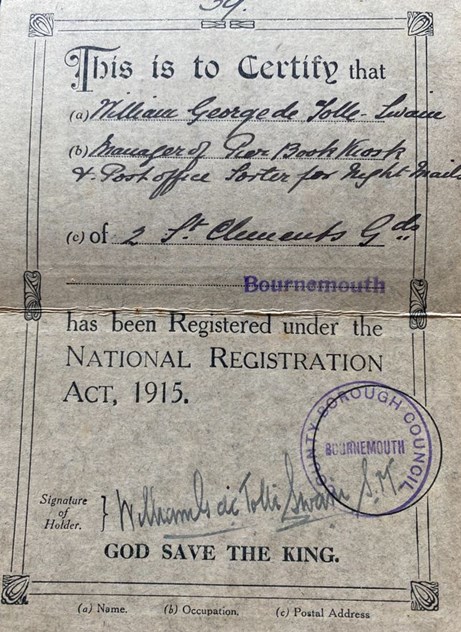 39.
This is to Certify that
(a) William George de Tolle-Swain
(b) Manager of Pier Book Kiosk
& Post office Sorter for Night Mails
(c) of 2 St. Clements Gds
Bournemouth
has been Registered under the
NATIONAL REGISTRATION
ACT, 1915.
COUNTY BOROUGH COUNCIL
BOURNEMOUTH
Signature
of
Holder. } William G de Tolle Swain
GOD SAVE THE KING.
(a) Name. (b) Occupation. (c) Postal Address